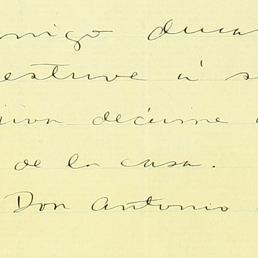 migo dura
estuve á s
decirme
de la casa.
Don Antonio